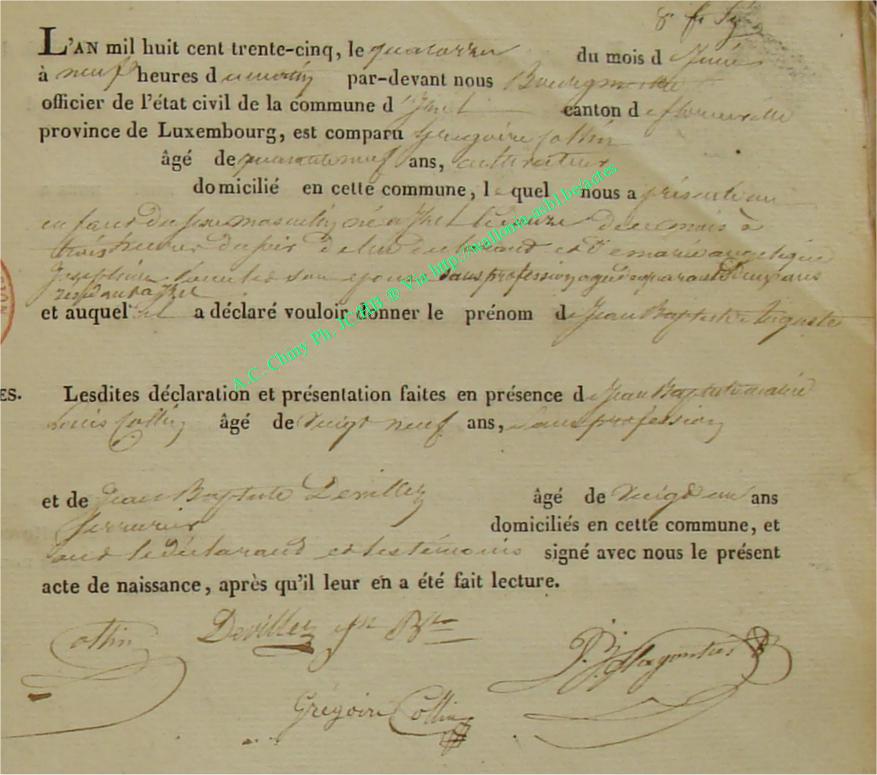 L'AN mil huit cent trente-cinq, le quatorze du mois de
à neuf heures du matin par-devant nous Bourgmestre
officier de l'état civil de la commune d'Izel canton de florenville
province de Luxembourg, est comparu Grégoire Collin
âgé de quarante neuf ans, cultivateur
domicilié en cette commune, lequel nous a présenté un
enfant du sexe masculin, né a Izel le douze du mois à
trois heures du soir de lui déclarant et de marie angelique
Josephine son epouse sans profession agée quarante ans
residant a Izel
et auquel il a déclaré vouloir donner le prénom de Jean Baptiste Auguste
ES. Lesdites déclaration et présentation faites en présence de Jean Baptiste
Louis Collin âgé de vingt neuf ans, sans profession
et de Jean Baptiste Devillez âgé de vingt un ans
Serrurier domiciliés en cette commune, et
ont le déclarant et les témoins signé avec nous le présent
acte de naissance, après qu'il leur en a été fait lecture.
Collin Devillez Jn Bte
Grégoire Collin
A.C. Chiny Ph. JCHB ® Via http://wallonia-asbl.be/actes